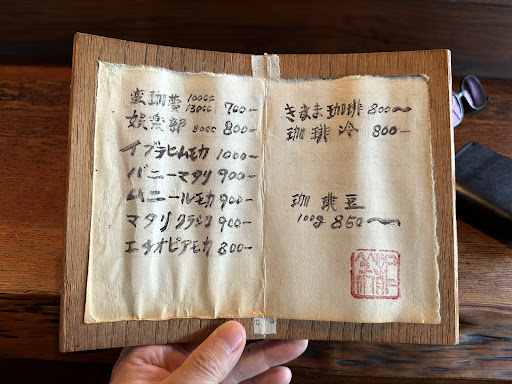 蛮珈夢 100cc 130cc 700-
娯楽部 800cc 800-
イブラヒムモカ 1000-
バニーマタリ 900-
ハニールモカ 900-
マタリ クラシコ 900-
エチオピアモカ 800-
きまま珈琲 800〜
珈琲冷 800-
珈琲豆
100g 850〜